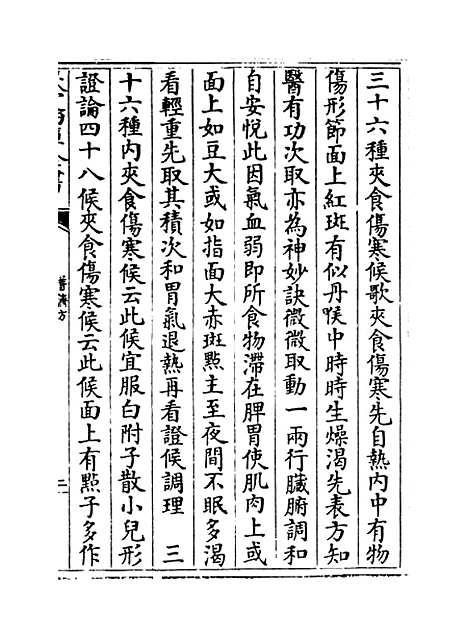 三十六種夾食傷寒候歌夾食傷寒先自熱内中有物
傷形節面上紅斑有似丹喉中時時生燥渴先表方知
醫有功次取亦為神妙訣微微取動一兩行臟腑調和
自安悅此因氣血弱即所食物滯在脾胃使肌肉上或
面上如豆大或如指面大赤斑點主至夜間不眠多渴
看輕重先取其積次和胃氣退熱再看證候調理　三
十六種内夾食傷寒候云此候宜服白附子散小兒形
證論四十八候夾食傷寒候云此候面上有點子多作
普濟方
二